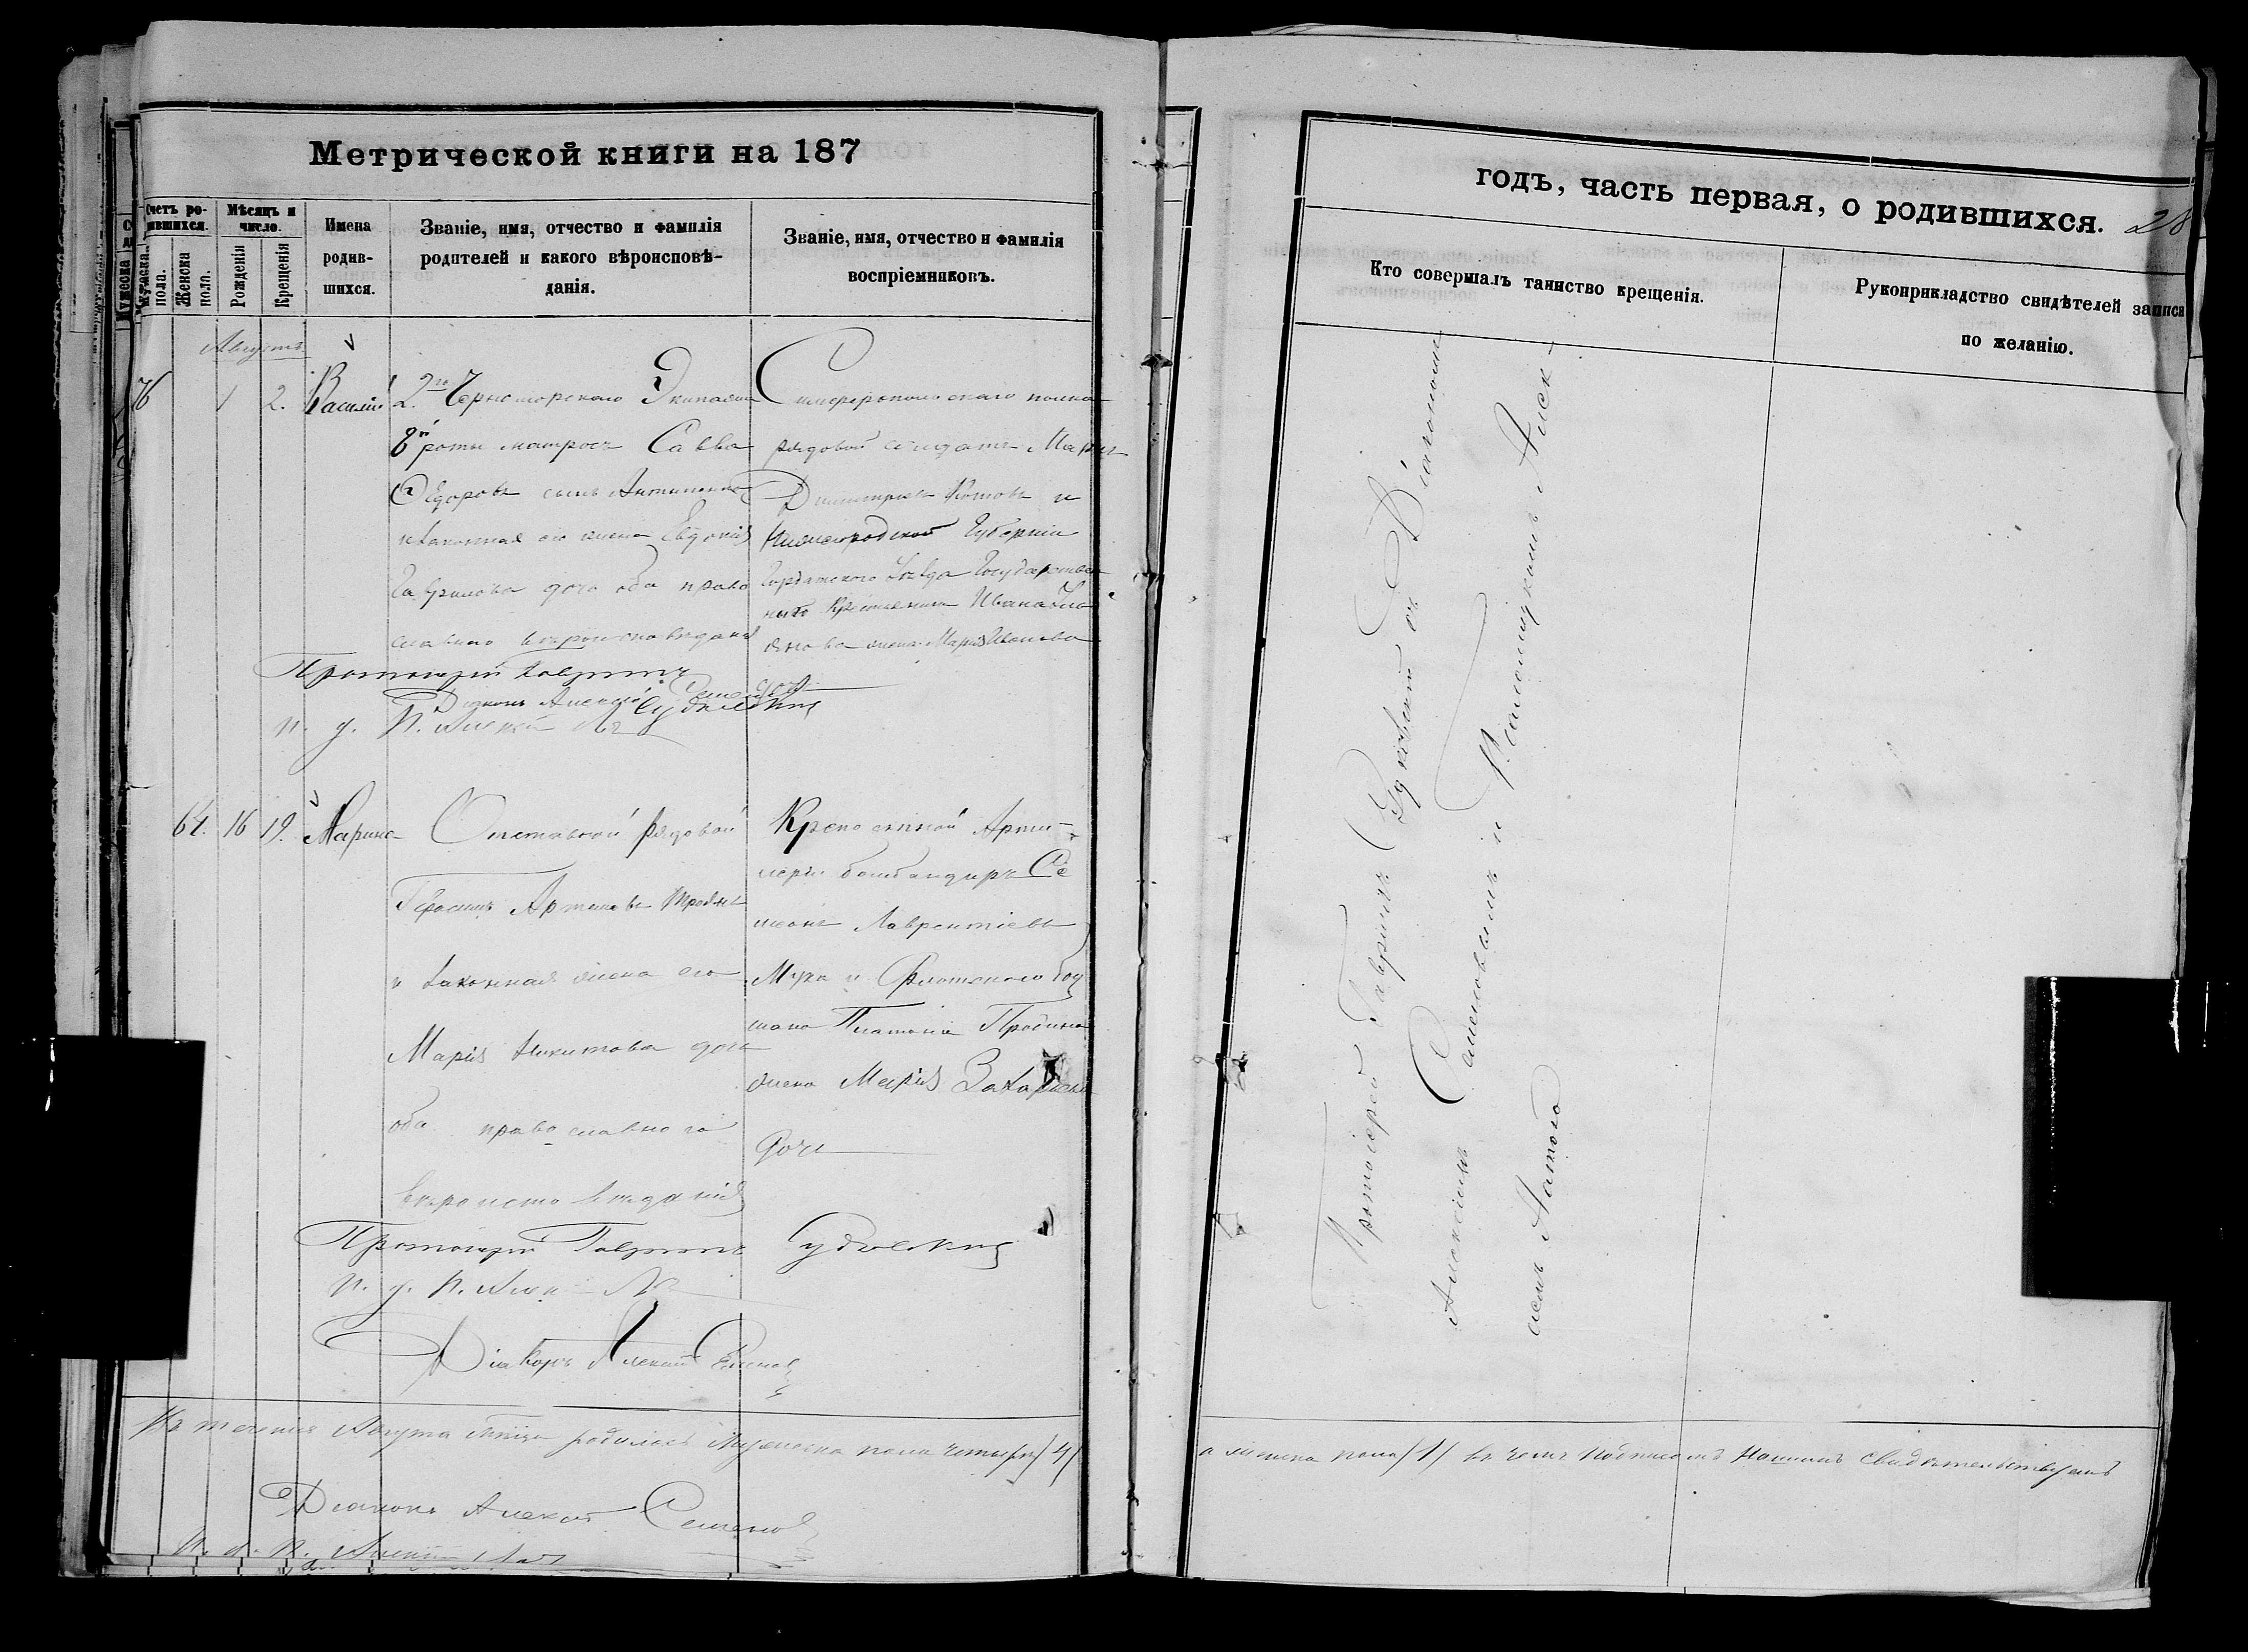 Метрической книги на 187
Счетъ родившихся.
Мужеска пола.
Женска пола.
Мѣсяцъ и число.
Рожденія
Крещенія
Имена родившихся.
Званіе, имя, отчество и фамилія
родителей и какого вѣроисповѣ-
данія.
Званіе, имя, отчество и фамилія
воспріемниковъ.
Августъ
76
1
2.
Василій
2го Черноморскаго Экипажа
8й роты матросъ Савва
Ѳедоровъ сынъ
и законная его жена Евдокія
Гаврилова дочь оба право
славнаго вѣроисповѣданія
Симферопольскаго полка
рядовой солдатъ
Димитріевъ Котовъ и
Нижегородской Губерніи
Уѣзда Государствен
наго Крестьянина Ивана
жена Марія Иванова
дочь
Протоіерей Гавріилъ Судковскій
Діаконъ Алексій Семеновъ
64.
16
19.
Марина
Отставной рядовой
Герасимъ Артамовъ
и законная жена его
Марія Никитова дочь
оба православнаго
вѣроисповѣданія
Крепостной Арти-
леріи бомбандиръ Се
меонъ Лаврентіевъ
Мука и Флотскаго боц
мана Платона
жена Марія Захарьева
дочь
Протоіерей Гавріилъ Судковскій
Діаконъ Алексій Семеновъ
Въ теченіе Августа мѣсяца родилось Мужеска пола четыре /4/
Діаконъ Алексій Семеновъ
годъ, часть первая, о родившихся. 28
Кто совершалъ таинство крещенія.
Рукоприкладство свидѣтелей записи
по желанію.
Протоіерей Гавріилъ Судковскій съ Діакономъ
Алексіемъ Семеновымъ и Псаломщикомъ Алек-
сѣемъ
а женска пола /1/ въ чемъ подписомъ Нашимъ свидѣтельствуемъ